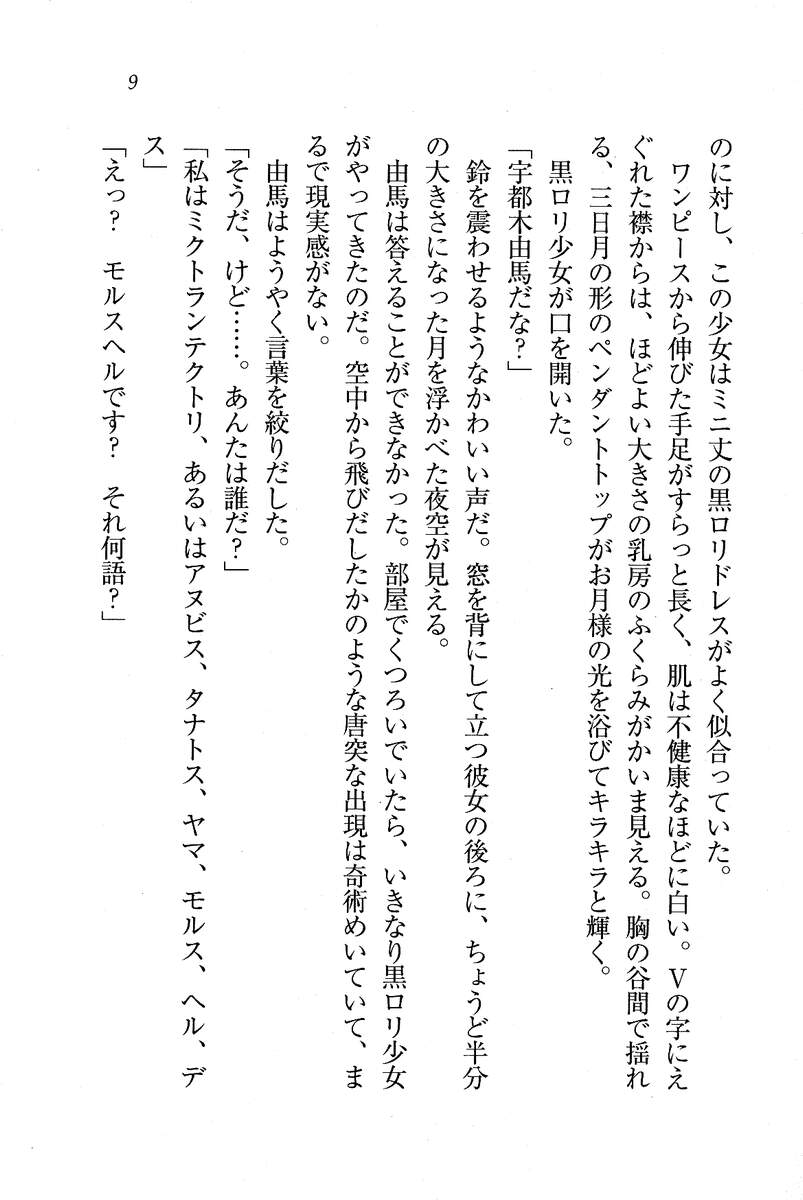 9
のに対し、この少女はミニ丈の黒ロリドレスがよく似合っていた。
　ワンピースから伸びた手足がすらっと長く、肌は不健康なほどに白い。Vの字にえ
ぐれた襟からは、ほどよい大きさの乳房のふくらみがかいま見える。胸の谷間で揺れ
る、三日月の形のペンダントトップがお月様の光を浴びてキラキラと輝く。
　黒ロリ少女が口を開いた。
「宇都木由馬だな？」
　鈴を震わせるようなかわいい声だ。窓を背にして立つ彼女の後ろに、ちょうど半分
の大きさになった月を浮かべた夜空が見える。
　由馬は答えることができなかった。部屋でくつろいでいたら、いきなり黒ロリ少女
がやってきたのだ。空中から飛びだしたかのような唐突な出現は奇術めいていて、ま
るで現実感がない。
　由馬はようやく言葉を絞りだした。
「そうだ、けど……。あんたは誰だ？」
「私はミクトランテクトリ、あるいはアヌビス、タナトス、ヤマ、モルス、ヘル、デ
ス」
「えっ？　モルスヘルです？　それ何語？」